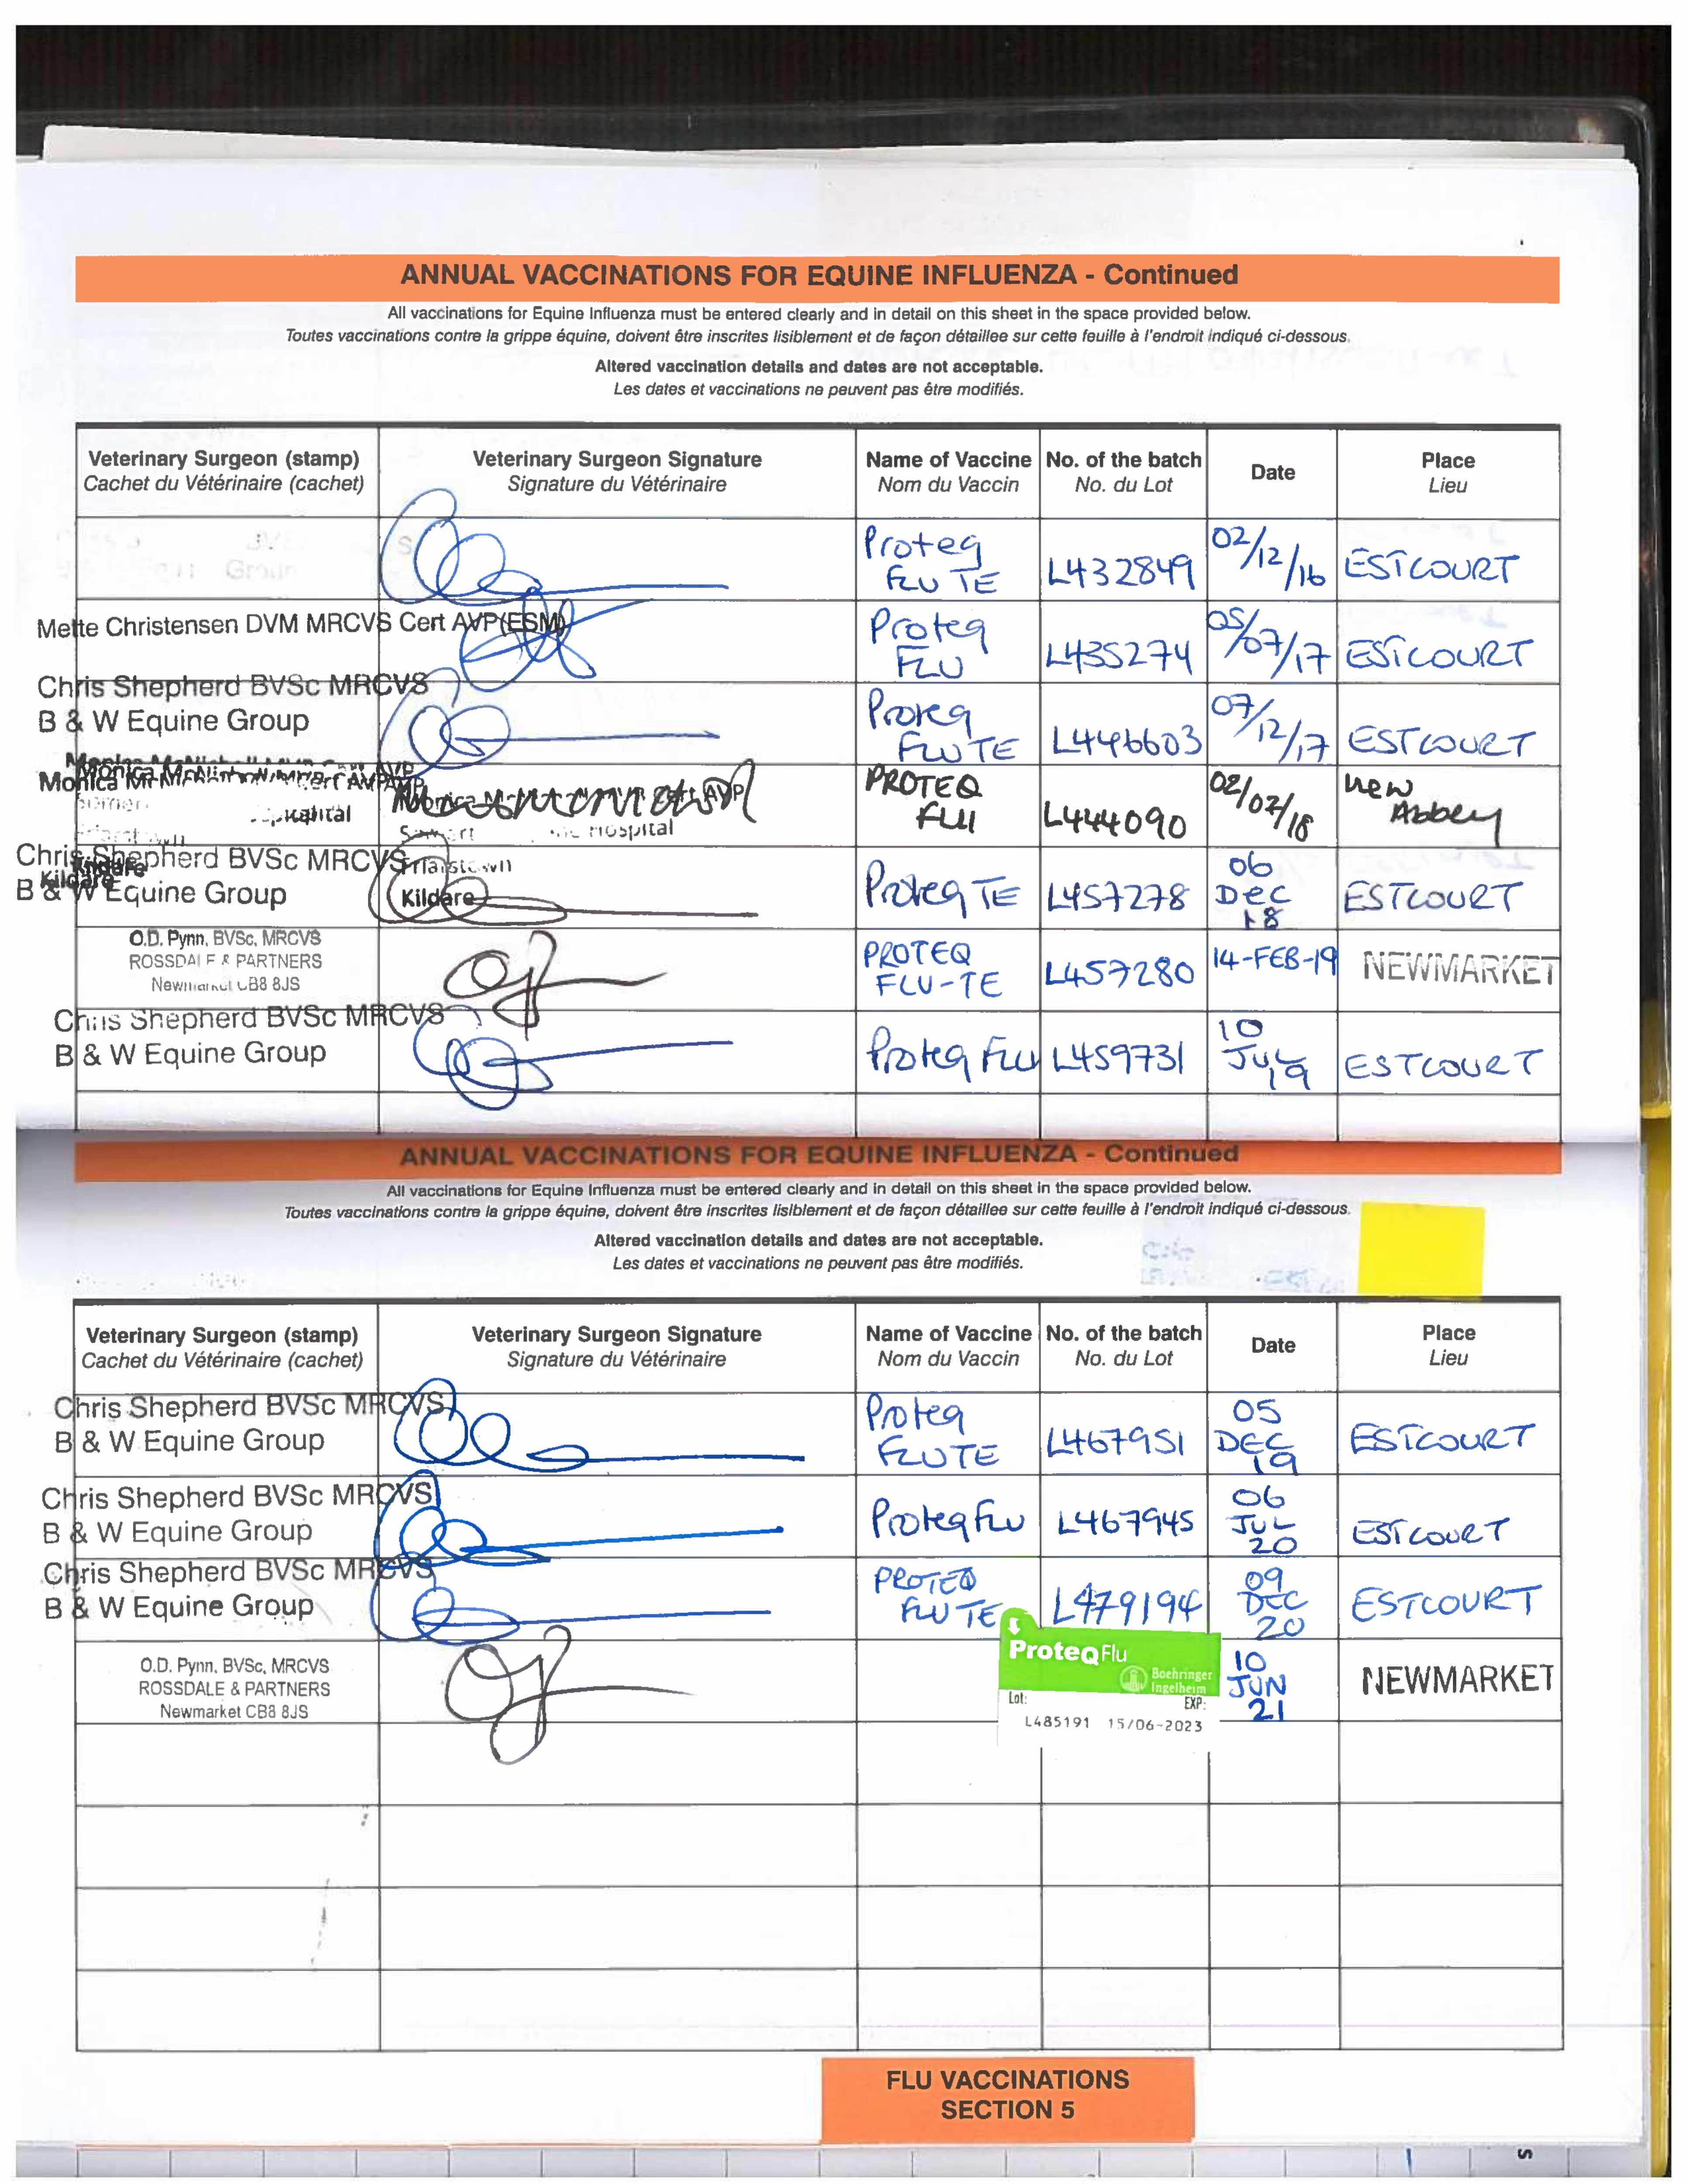 ANNUAL VACCINATIONS FOR EQUINE INFLUENZA - Continued
All vaccinations for Equine Influenza must be entered clearly and in detail on this sheet in the space provided below.
Toutes vaccinations contre la grippe équine, doivent être inscrites lisiblement et de façon détaillee sur cette feuille à l'endroit indiqué ci-dessous.
Altered vaccination details and dates are not acceptable.
Les dates et vaccinations ne peuvent pas être modifiés.
Veterinary Surgeon (stamp) Veterinary Surgeon Signature Name of Vaccine No. of the batch Date Place
Cachet du Vétérinaire (cachet) Signature du Vétérinaire Nom du Vaccin No. du Lot Lieu
Proteq
FLU TE L432849 02/12/16 ESTCOURT
Mette Christensen DVM MRCVS Cert AVP(ESM) Proteq
FLU L435274 05/07/17 ESTCOURT
Chris Shepherd BVSc MRCVS Proteq
B & W Equine Group FLUTE L446603 07/12/17 ESTCOURT
Monica PROTEQ new
FLU L444090 02/02/18 Abbey
Hospital
Chris Shepherd BVSc MRCVS 06
B & W Equine Group Kildare Proteq TE L457278 Dec ESTCOURT
Kildare 18
O.D. Pynn, BVSc, MRCVS PROTEQ
ROSSDALE & PARTNERS FLU-TE L457280 14-FEB-19 NEWMARKET
Newmarket CB8 8JS
Chris Shepherd BVSc MRCVS 10
B & W Equine Group Proteq Flu L459731 JUL ESTCOURT
19
ANNUAL VACCINATIONS FOR EQUINE INFLUENZA - Continued
All vaccinations for Equine Influenza must be entered clearly and in detail on this sheet in the space provided below.
Toutes vaccinations contre la grippe équine, doivent être inscrites lisiblement et de façon détaillee sur cette feuille à l'endroit indiqué ci-dessous.
Altered vaccination details and dates are not acceptable.
Les dates et vaccinations ne peuvent pas être modifiés.
Veterinary Surgeon (stamp) Veterinary Surgeon Signature Name of Vaccine No. of the batch Date Place
Cachet du Vétérinaire (cachet) Signature du Vétérinaire Nom du Vaccin No. du Lot Lieu
Chris Shepherd BVSc MRCVS Proteq 05
B & W Equine Group FLUTE L467951 DEC ESTCOURT
19
Chris Shepherd BVSc MRCVS 06
B & W Equine Group Proteq Flu L467945 JUL ESTCOURT
20
Chris Shepherd BVSc MRCVS PROTEQ 09
B & W Equine Group FLUTE L479194 DEC ESTCOURT
20
O.D. Pynn, BVSc, MRCVS ProteqFlu 10
ROSSDALE & PARTNERS Boehringer JUN NEWMARKET
Newmarket CB8 8JS Ingelheim 21
Lot: EXP:
L485191 15/06-2023
FLU VACCINATIONS
SECTION 5
5